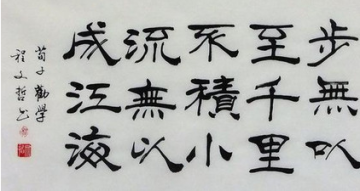 步無以
至千里
不積小
流無以
成江海
荀子勸學
程文哲书